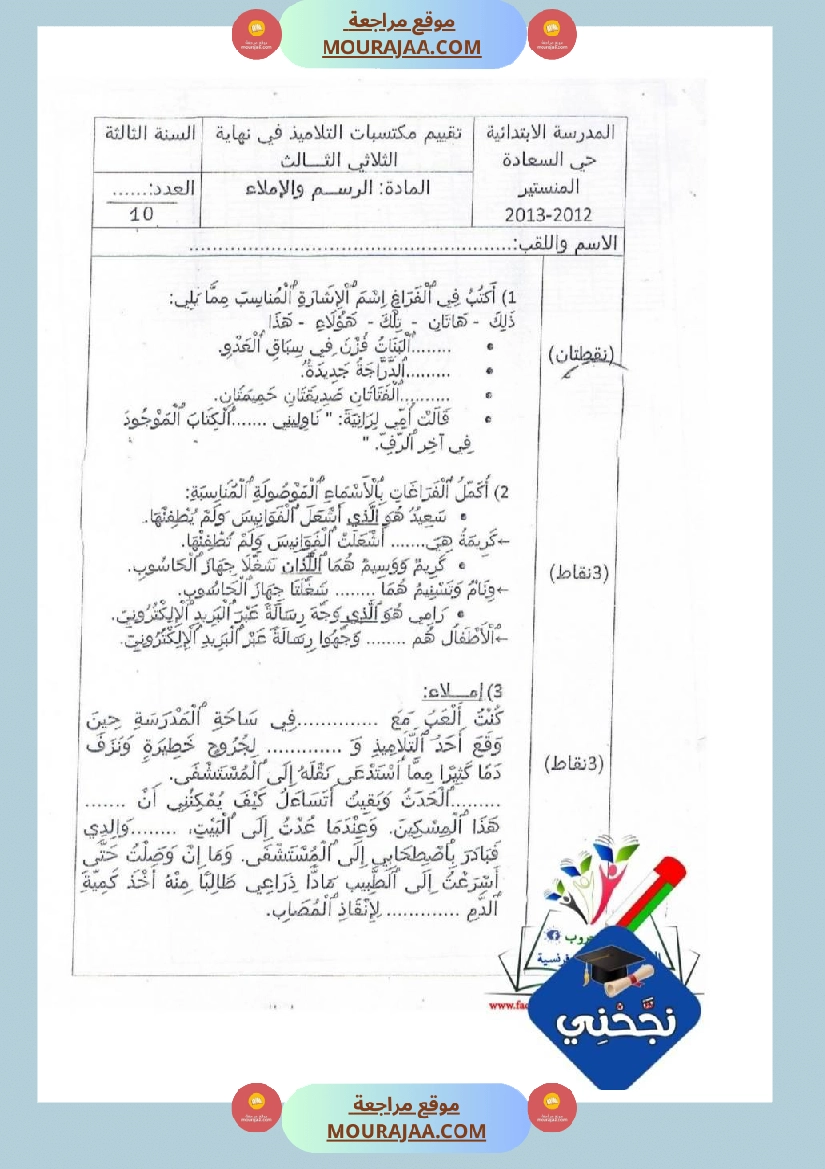 موقع مراجعة
MOURAJAA.COM
المدرسة الابتدائية
حي السعادة
المنستير
2013-2012
تقييم مكتسبات التلاميذ في نهاية
الثلاثي الثـــالث
المادة: الرســـم والإملاء
السنة الثالثة
العدد:......
10
الاسم واللقب:........................................................
1) أَكْتُبُ فِي ٱلْفَرَاغِ اِسْمَ ٱلْإِشَارَةِ ٱلْمُنَاسِبَ مِمَّا يَلِي:
ذَلِكَ - هَاتَانِ - تِلْكَ - هَؤُلَاءِ - هَذَا
(نقطتان)
• ........ٱلْبَنَاتُ فُزْنَ فِي سِبَاقِ ٱلْعَدْوِ.
• .........ٱلدَّرَّاجَةُ جَدِيدَةٌ.
• ..........ٱلْفَتَاتَانِ صَدِيقَتَانِ حَمِيمَتَانِ.
• قَالَتْ أُمِّي لِرَانِيَةَ: " نَاوِلِينِي .......ٱلْكِتَابَ ٱلْمَوْجُودَ
فِي آخِرِ ٱلرَّفِّ. "
2) أُكَمِّلُ ٱلْفَرَاغَاتِ بِٱلْأَسْمَاءِ ٱلْمَوْصُولَةِ ٱلْمُنَاسِبَةِ:
• سَعِيدٌ هُوَ ٱلَّذِي أَشْعَلَ ٱلْفَوَانِيسَ وَلَمْ يُطْفِئْهَا.
←كَرِيمَةُ هِيَ....... أَشْعَلَتْ ٱلْفَوَانِيسَ وَلَمْ تُطْفِئْهَا.
• كَرِيمٌ وَوَسِيمٌ هُمَا ٱللَّذَانِ شَغَّلَا جِهَازَ ٱلْحَاسُوبِ.
(3نقاط)
←وِئَامُ وَتَسْنِيمُ هُمَا ........ شَغَّلَتَا جِهَازَ ٱلْحَاسُوبِ.
• رَامِي هُوَ ٱلَّذِي وَجَّهَ رِسَالَةً عَبْرَ ٱلْبَرِيدِ ٱلْإِلِكْتُرُونِيِّ.
←ٱلْأَطْفَالُ هُم ........ وَجَّهُوا رِسَالَةً عَبْرَ ٱلْبَرِيدِ ٱلْإِلِكْتُرُونِيِّ.
3) إمـــلاء:
كُنْتُ أَلْعَبُ مَعَ ..............فِي سَاحَةِ ٱلْمَدْرَسَةِ حِينَ
وَقَعَ أَحَدُ ٱلتَّلَامِيذِ وَ ............. لِجُرُوحٍ خَطِيرَةٍ وَنَزَفَ
(3نقاط)
دَمًا كَثِيرًا مِمَّا ٱسْتَدْعَى نَقْلَهُ إِلَى ٱلْمُسْتَشْفَى.
.........ٱلْحَدَثُ وَبَقِيتُ أَتَسَاءَلُ كَيْفَ يُمْكِنُنِي أَنْ .......
هَذَا ٱلْمِسْكِينَ. وَعِنْدَمَا عُدْتُ إِلَى ٱلْبَيْتِ، ........وَالِدِي
فَبَادَرَ بِٱصْطِحَابِي إِلَى ٱلْمُسْتَشْفَى. وَمَا إِنْ وَصَلْتُ حَتَّى
أَسْرَعْتُ إِلَى ٱلطَّبِيبِ مَادًّا ذِرَاعِي طَالِبًا مِنْهُ أَخْذَ كَمِيَّةَ
ٱلدَّمِ ............. لِإِنْقَاذِ ٱلْمُصَابِ.
نجّحْنِي
موقع مراجعة
MOURAJAA.COM